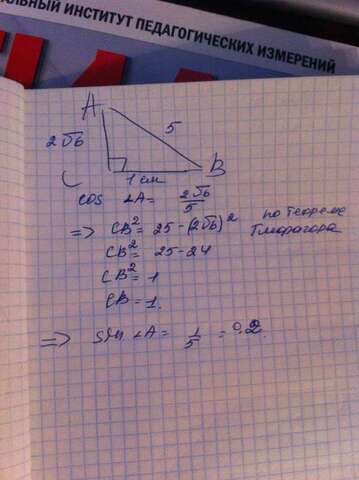 ЛЬНЫЙ ИНСТИТУТ ПЕДАГОГИЧЕСКИХ ИЗМЕРЕНИЙ
A
2√6
5
B
C
1 см
cos ∠A = 2√6/5
=> CB² = 25 - (2√6)² по теореме
CB² = 25 - 24 Пифагора
CB² = 1
CB = 1.
=> sin ∠A = 1/5 = 0.2